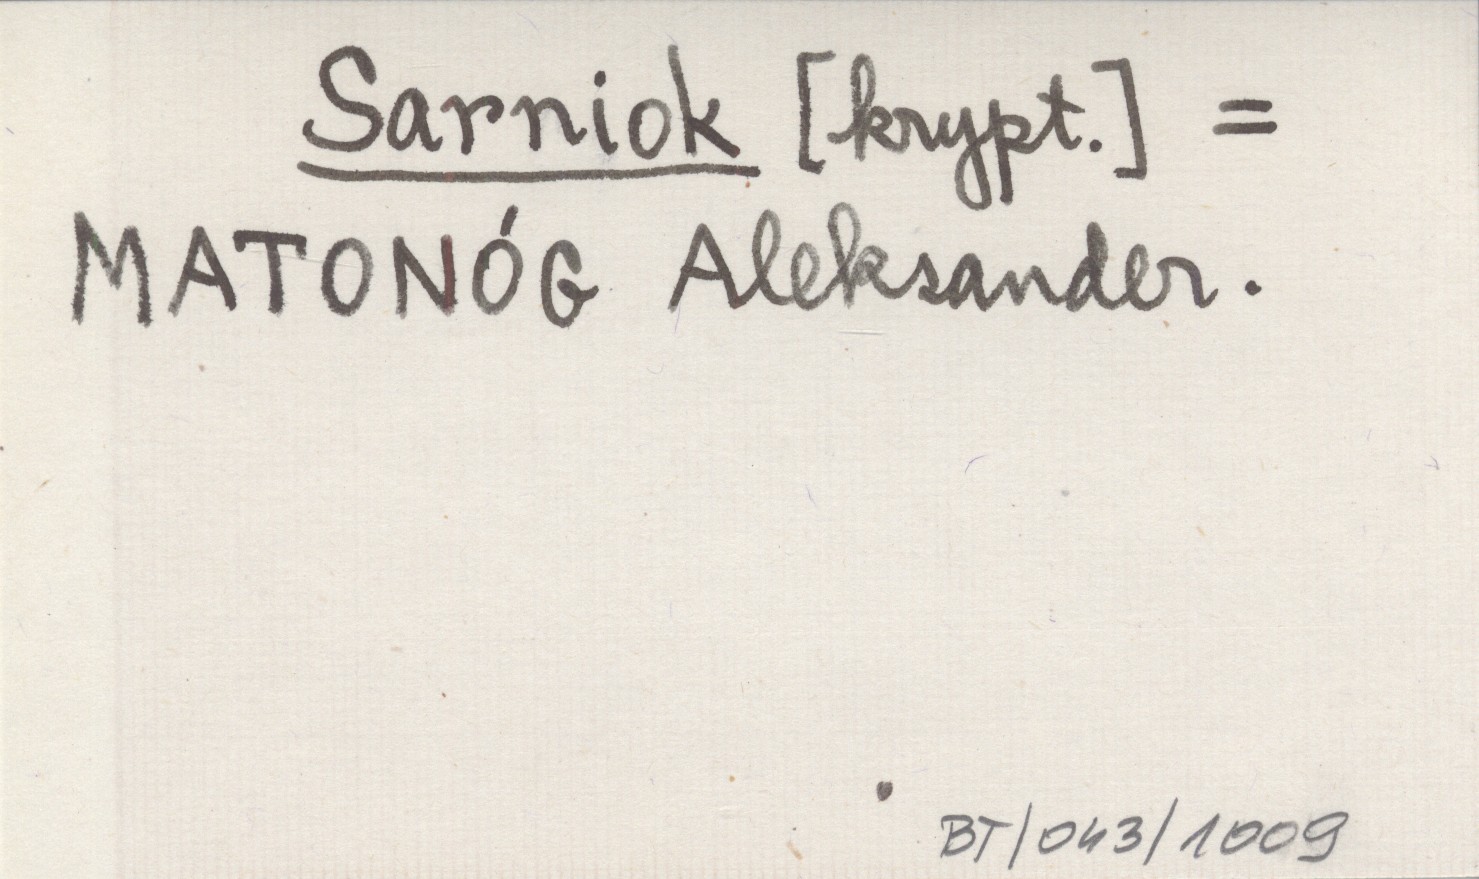 Sarniok [krypt.] =
MATONÓG Aleksander.
BT/043/1009